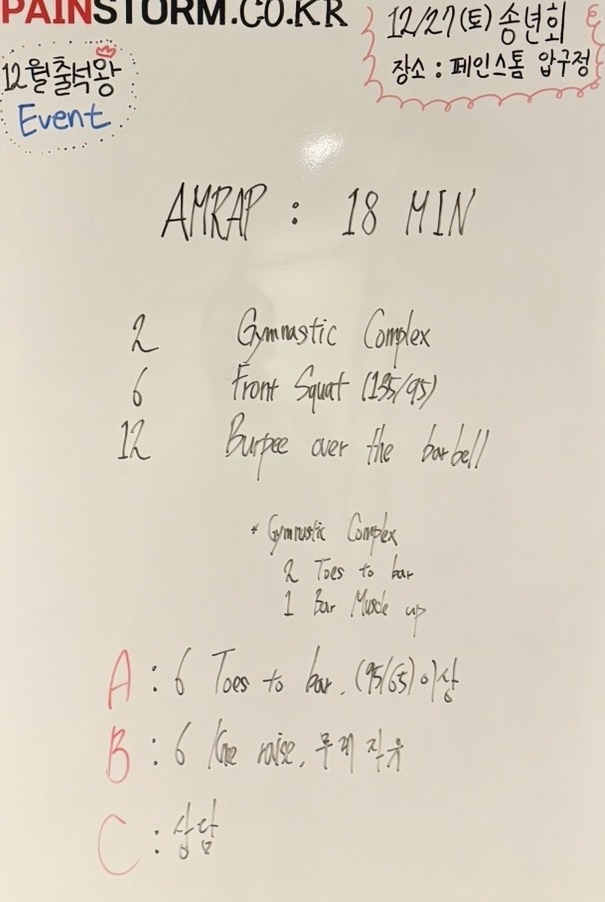 PAINSTORM.CO.KR
12/27(토) 송년회
장소 : 페인스톰 압구정
12월 출석왕
Event
AMRAP : 18 MIN
2 Gymnastic Complex
6 Front Squat (135/95)
12 Burpee over the barbell
* Gymnastic Complex
2 Toes to bar
1 Bar Muscle up
A : 6 Toes to bar, (95/65) 이상
B : 6 Knee raise, 무게 자유
C : 상담